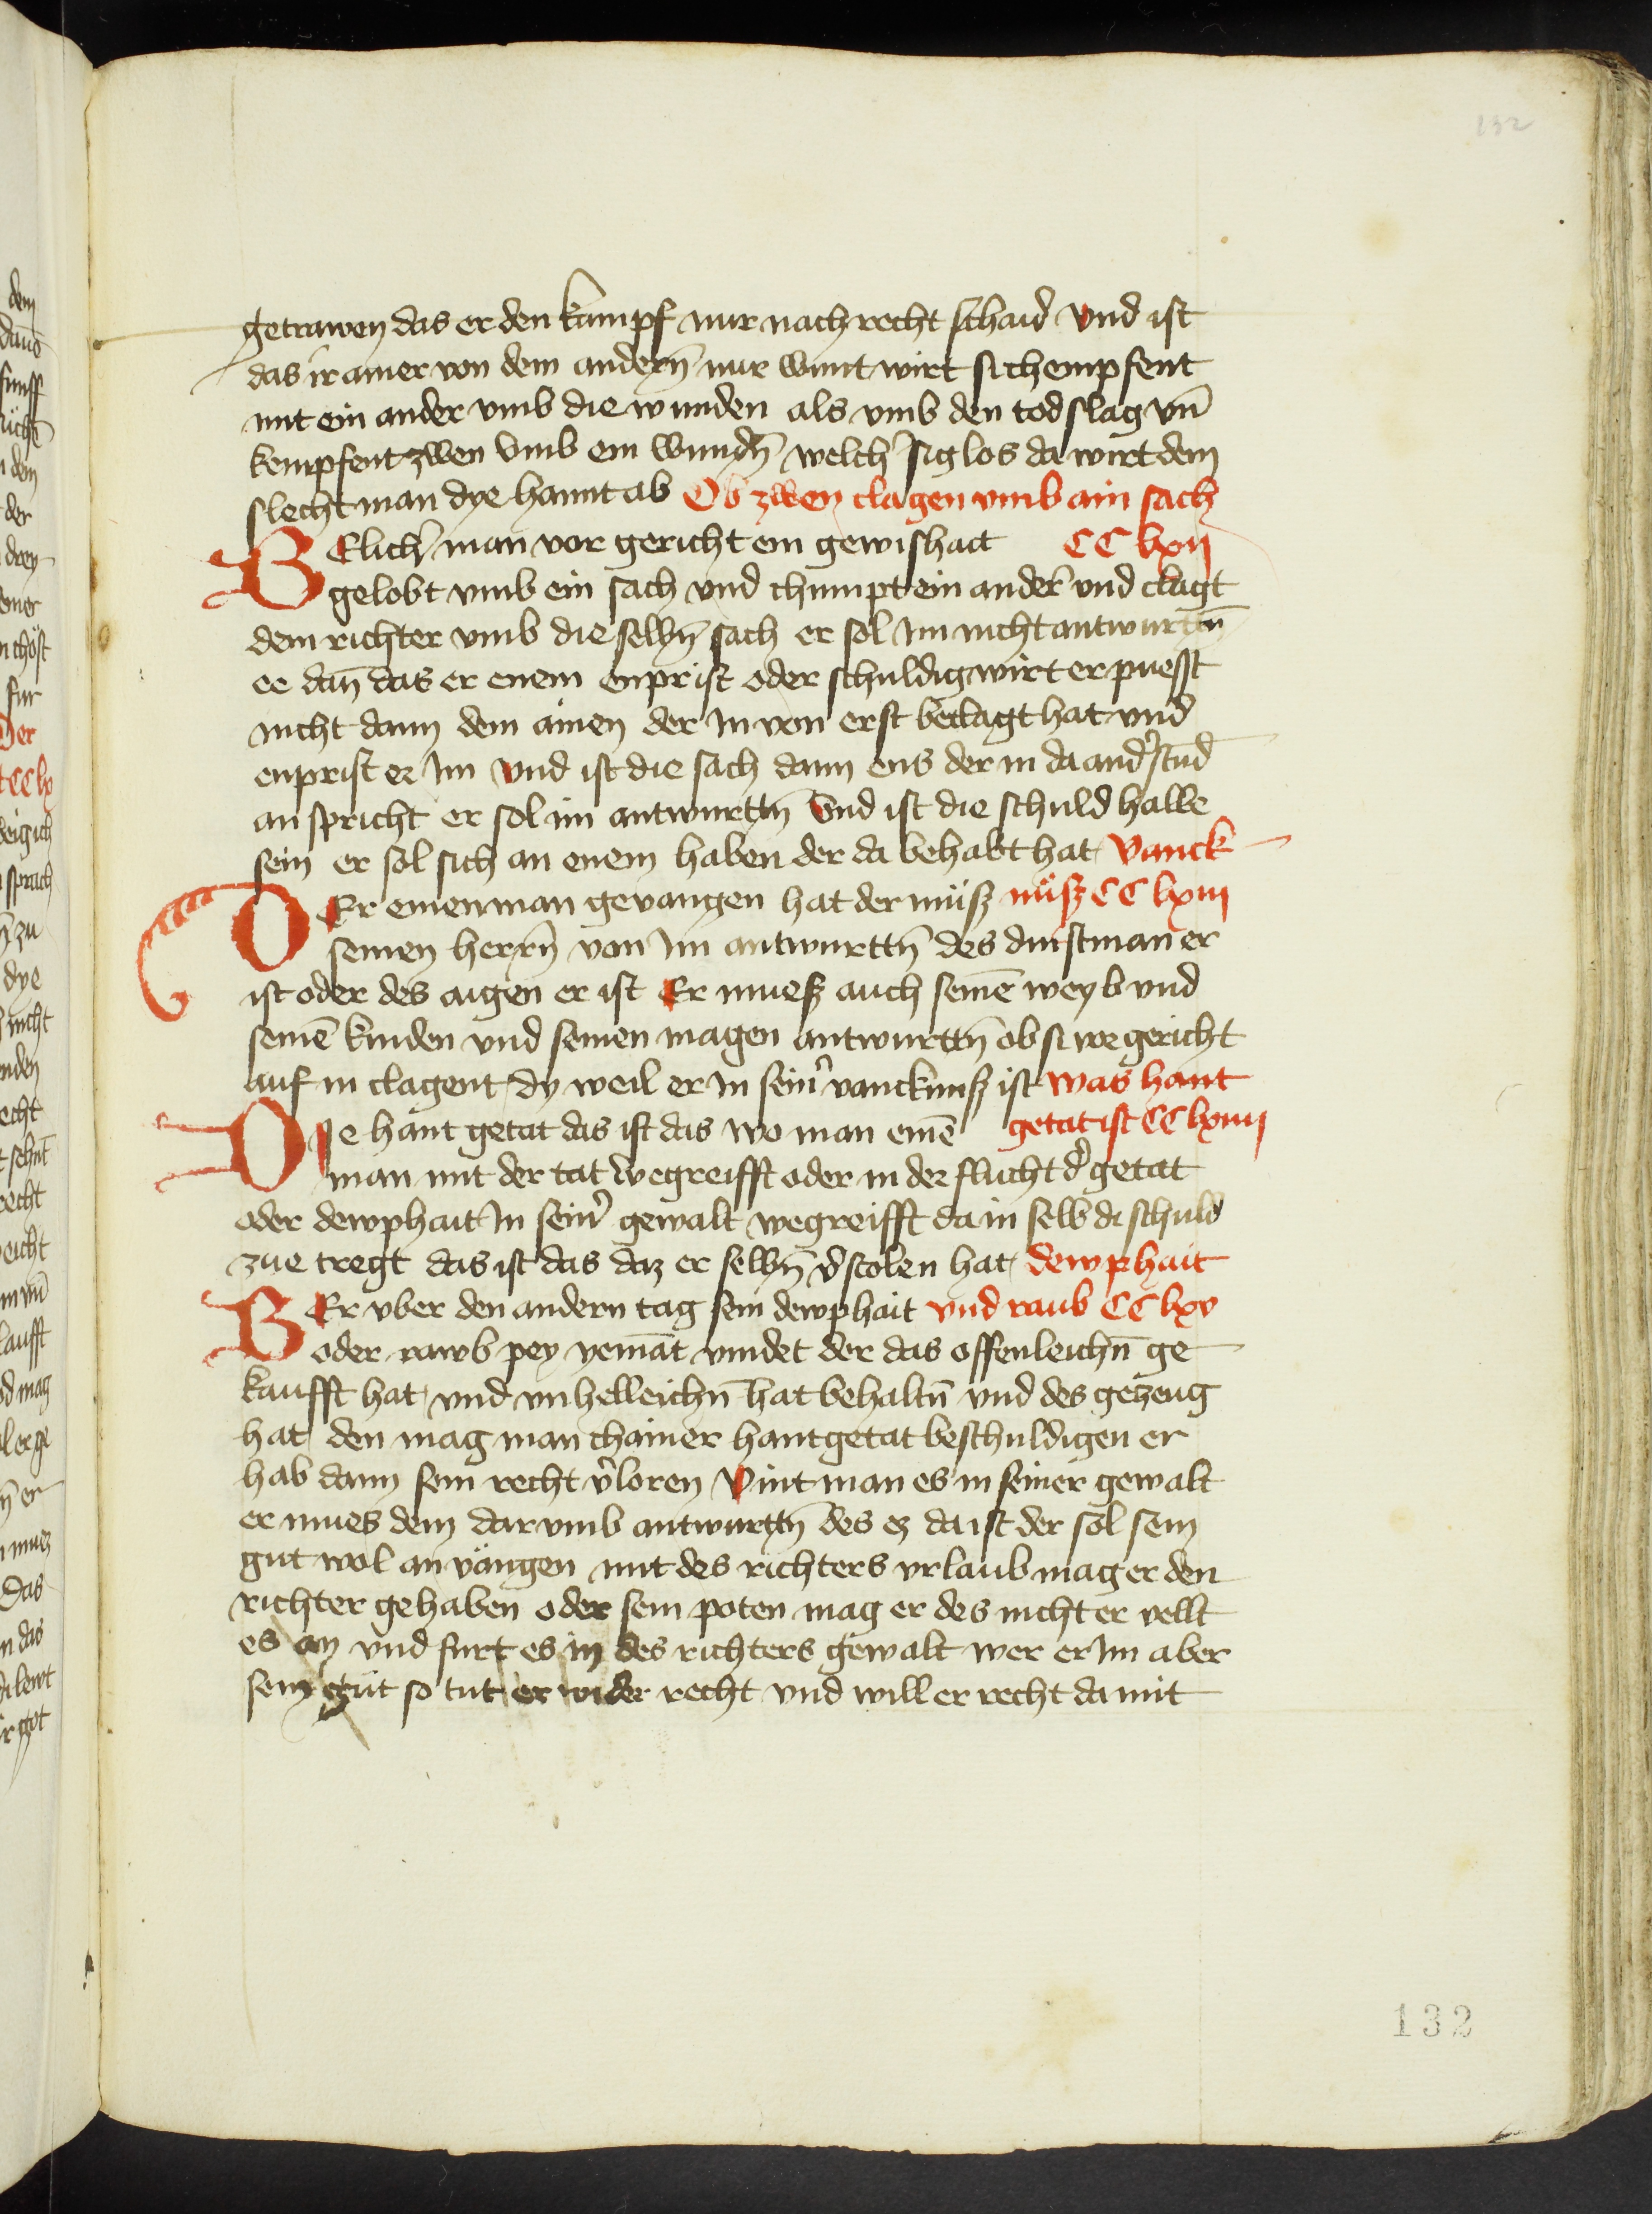 132
getrawen das er den kampf nur nach recht schaid vnd ist
das ir ainer von dem anderñ nur wunt wirt si chempfent
mit ein ander vmb die wunden als vmb den tod slag vñ
kempfent zwen vmb ein wundñ welch siglos da wirt dem
slecht man dye hannt ab Ob zwen clagen vmb ain sach
WElich man vor gericht ein gewishait CC lxii
gelobt vmb ein sach vnd chumpt ein ander vnd clagt
dem richter vmb die selbñ sach er sol im nicht antwurttñ
ee dañ das er enem enprist oder schuldig wirt er puesst
nicht dann dem ainen der in von erst beclagt hat vnd
enprist er im vnd ist die sach dann ens der in da and stund
an spricht er sol im antwurttñ vnd ist die schuld halbe
sein er sol sich an enem haben der da behabt hat vanck
DEr einen man gevangen hat der müsz nüsz CC lxiii
seinen herrñ von im antwurttñ des dinstman er
ist oder des aigen er ist Er muesz auch seinē weyb vnd
seinē kinden vnd seinen magen antwurttñ ob si we gericht
auf in clagent dy weil er in sein vancknusz ist was hant
DIe hant getat das ist das wo man einē getat ist CC lxiiii
man mit der tat wegreifft oder in der flucht d getat
oder dewphait In sein gewalt wegreifft da in selb di schuld
zue tregt das ist das daz er selbñ v̾stolen hat dewphait
WEr vber den andern tag sein dewphait vnd raub CC lxv
oder rawb pey yemāt vindet der das offenleichñ ge
kaufft hat vnd vnhelleichñ hat behaltñ vnd des gezeug
hat den mag man chainer hantgetat beschuldigen er
hab dann sein recht v̾loren Vint man es in seiner gewalt
er mues dem dar vmb antwurttñ des ez da ist der sol sein
gut wol an vängen mit des richters vrlaub mag er den
richter gehaben oder sein poten mag er des nicht er vellt
es an vnd furt es in des richters gewalt wer er im aber
sein gut so tut er wider recht vnd will er recht da mit
132